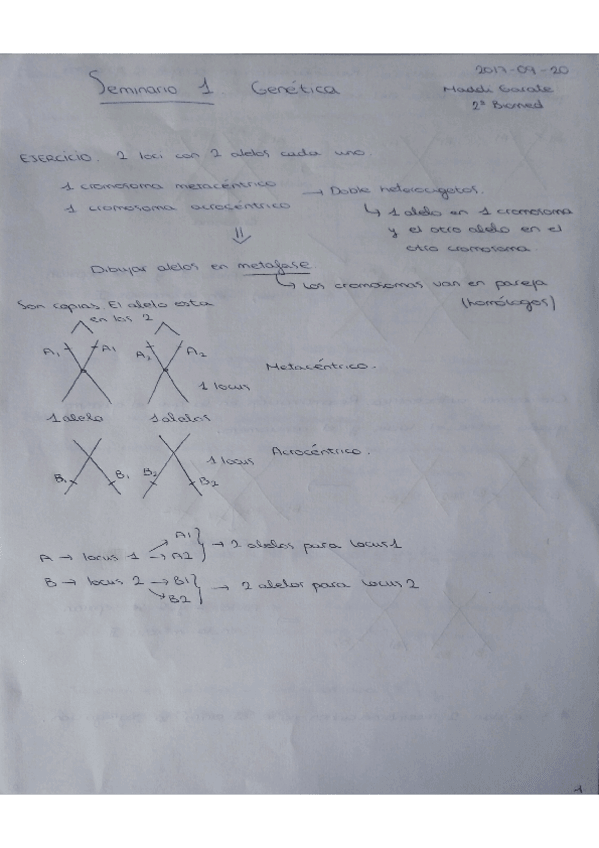 2017-09-20
Seminario 1. Genética
2º Biomed
EJERCICIO. 2 loci con 2 alelos cada uno.
1 cromosoma metacéntrico
→ Doble heterocigotos.
1 cromosoma acrocéntrico
↳ 1 alelo en 1 cromosoma
y el otro alelo en el
otro cromosoma.
⇓
Dibujar alelos en metafase
↳ Los cromosomas van en pareja
(homólogos)
Son copias. El alelo esta
en los 2
A1 A1 A2 A2
Metacéntrico.
1 locus
1 alelo 1 alelos
B1 B1 B2 B2
1 locus
Acrocéntrico.
A → locus 1 → A1 → A2 } → 2 alelos para locus 1
B → locus 2 → B1 → B2 } → 2 alelos para locus 2
1